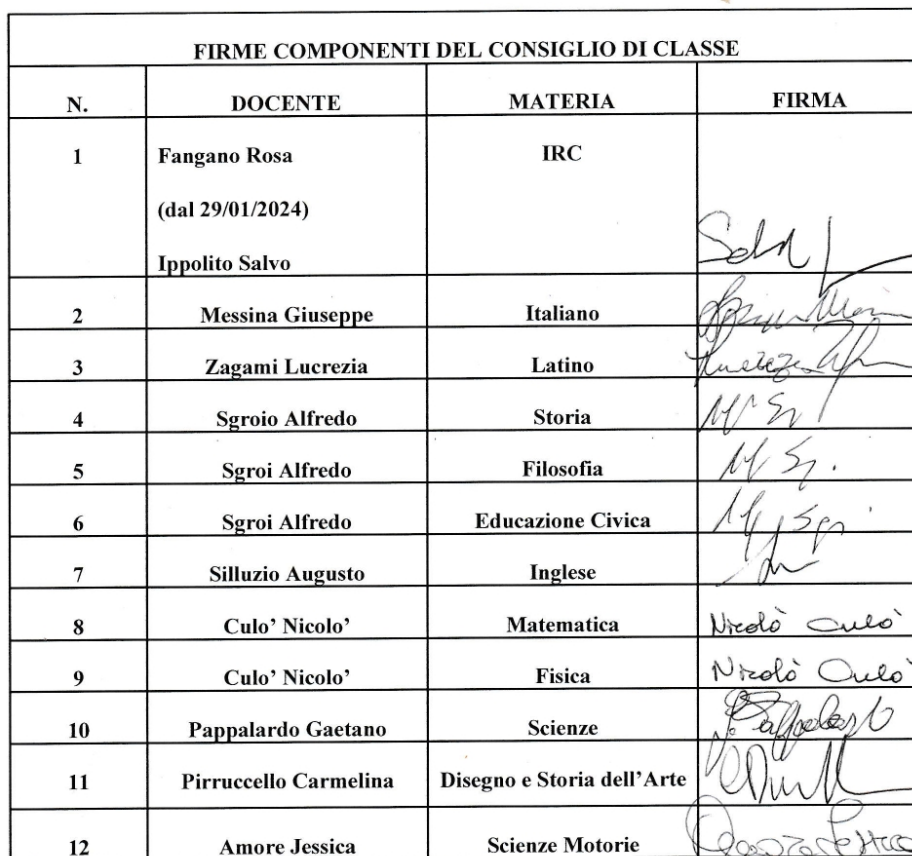 FIRME COMPONENTI DEL CONSIGLIO DI CLASSE
N. DOCENTE MATERIA FIRMA
1 Fangano Rosa IRC
(dal 29/01/2024)
Ippolito Salvo
2 Messina Giuseppe Italiano
3 Zagami Lucrezia Latino
4 Sgroio Alfredo Storia
5 Sgroi Alfredo Filosofia
6 Sgroi Alfredo Educazione Civica
7 Silluzio Augusto Inglese
8 Culo’ Nicolo’ Matematica Nicolò Culò
9 Culo’ Nicolo’ Fisica Nicolò Culò
10 Pappalardo Gaetano Scienze
11 Pirruccello Carmelina Disegno e Storia dell’Arte
12 Amore Jessica Scienze Motorie